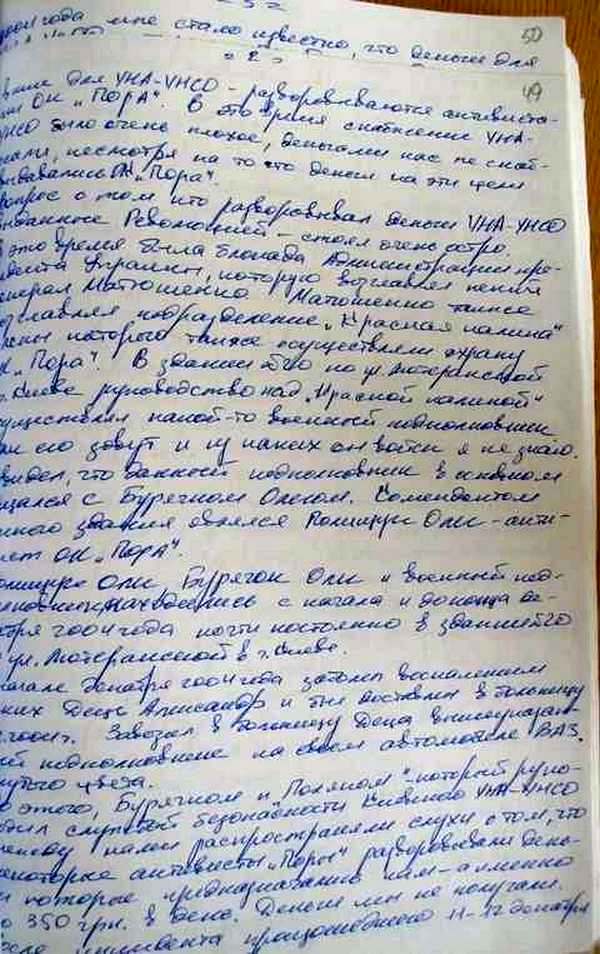 - 52 -
2004 года мне стало известно, что деньги для
50
- 2 -
49
для УНА-УНСО - разворовываются активиста-
ми ОК „Пора". В это время снабжение УНА-
УНСО было очень плохое, деньгами нас не снаб-
жали, несмотря на то что деньги на эти цели
выдавались ОК „Пора".
вопрос о том кто разворовывал деньги УНА-УНСО
выданные Революцией - стоял очень остро.
В это время была блокада Администрации пре-
зидента Украины, которую возглавлял некий
генерал Матюшенко. Матюшенко также
возглавлял подразделение „Красная калина"
члены которого также осуществляли охрану
ОК „Пора". В здании по ул. Лютеранской
г. Киеве руководство над „Красной калиной"
осуществлял какой-то военный подполковник
как его зовут и из каких он войск я не знаю.
видел, что данный подполковник в основном
общался с Бурячком Олегом. Комендантом
данного здания являлся Полищук Олег - акти-
вист ОК „Пора".
Полищук Олег, Бурячок Олег и военный под-
полковник находились с начала и до конца де-
кабря 2004 года почти постоянно в здании
ул. Лютеранской в г. Киеве.
начале декабря 2004 года заболел воспалением
легких Деда Александр и был доставлен в больницу
Завозил в больницу Деда вышеуказан-
ный подполковник на своем автомобиле ВАЗ.
цвета.
этого, Бурячком и Поляком, который руко-
водил службой безопасности Киевской УНА-УНСО
между нами распространяли слухи о том, что
некоторые активисты „Поры" разворовывали день-
ги которые предназначались нам - а именно
по 350 грн. в день. Деньги мы не получали.
после инцидента произошедшего 11-12 декабря